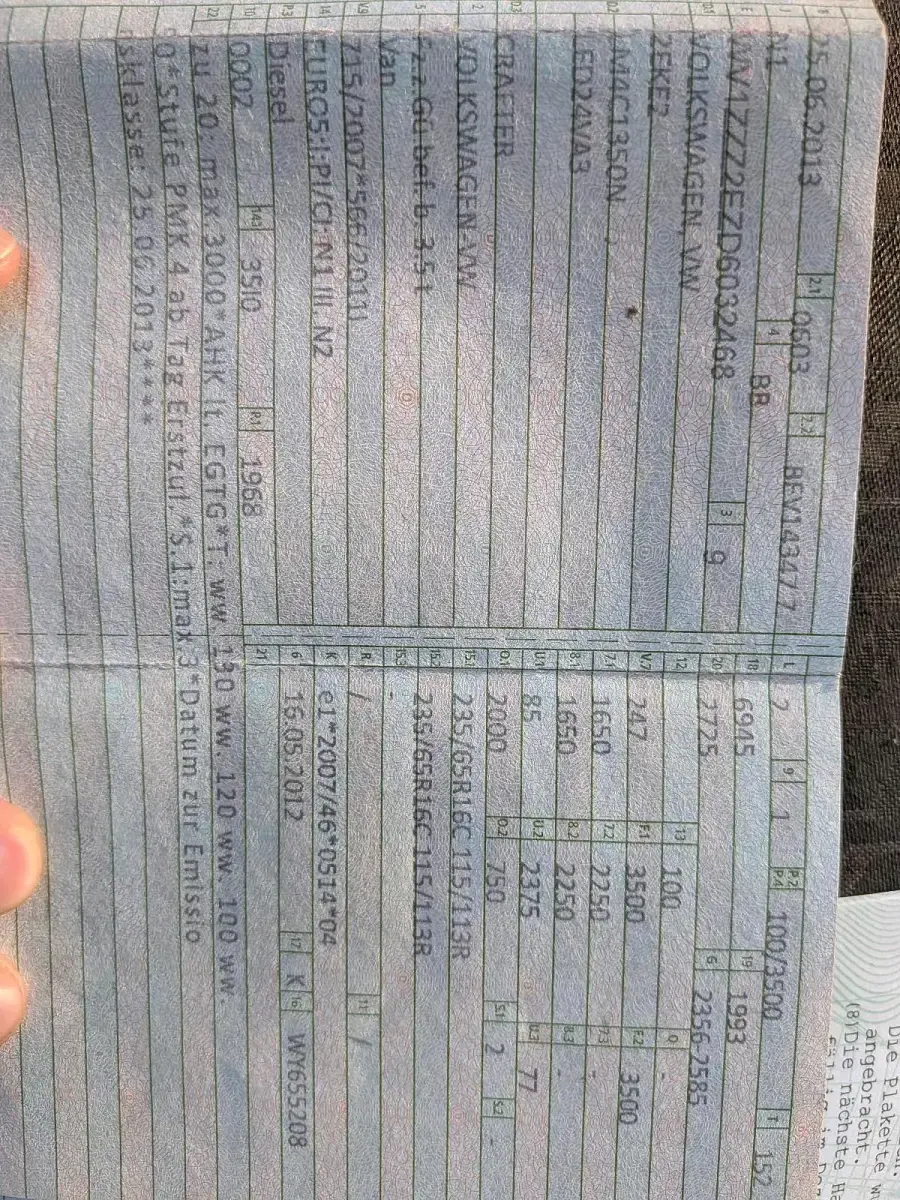 B 25.06.2013 2.1 0603 2.2 BEV143477
J N1 4 BR
E WV1ZZZ2EZD6032468 3 9
D.1 VOLKSWAGEN, VW
2EKE2
D.2 M4C1350N ,
ED24VA3
D.3 CRAFTER
2 VOLKSWAGEN-VW
5 Fz.z.Gü bef. b. 3.5 t
Van
V.9 715/2007*566/2011I
14 EURO5;I;PI/CI; N1 III, N2
P.3 Diesel
10 0002 14.1 35I0 P.1 1968
22 zu 20: max.3000*AHK lt. EGTG*T: ww. 130 ww. 120 ww. 100 ww.
90*Stufe PMK 4 ab Tag Erstzul.*S.1:max.3*Datum zur Emissio
sklasse: 25.06.2013****
L 2 9 1 P.2 P.4 100/3500 T 152
18 6945 19 1993
20 2725 G 2356-2585
12 13 100 Q -
V.7 247 F.1 3500 F.2 3500
7.1 1650 7.2 2250 7.3 -
8.1 1650 8.2 2250 8.3 -
U.1 85 U.2 2375 U.3 77
O.1 2000 O.2 750 S.1 2 S.2 -
15.1 235/65R16C 115/113R
15.2 235/65R16C 115/113R
15.3 -
R / 11 /
K e1*2007/46*0514*04
6 16.05.2012 17 K 16 WY655208
21
Die Plakette
angebracht.
(8)Die nächste